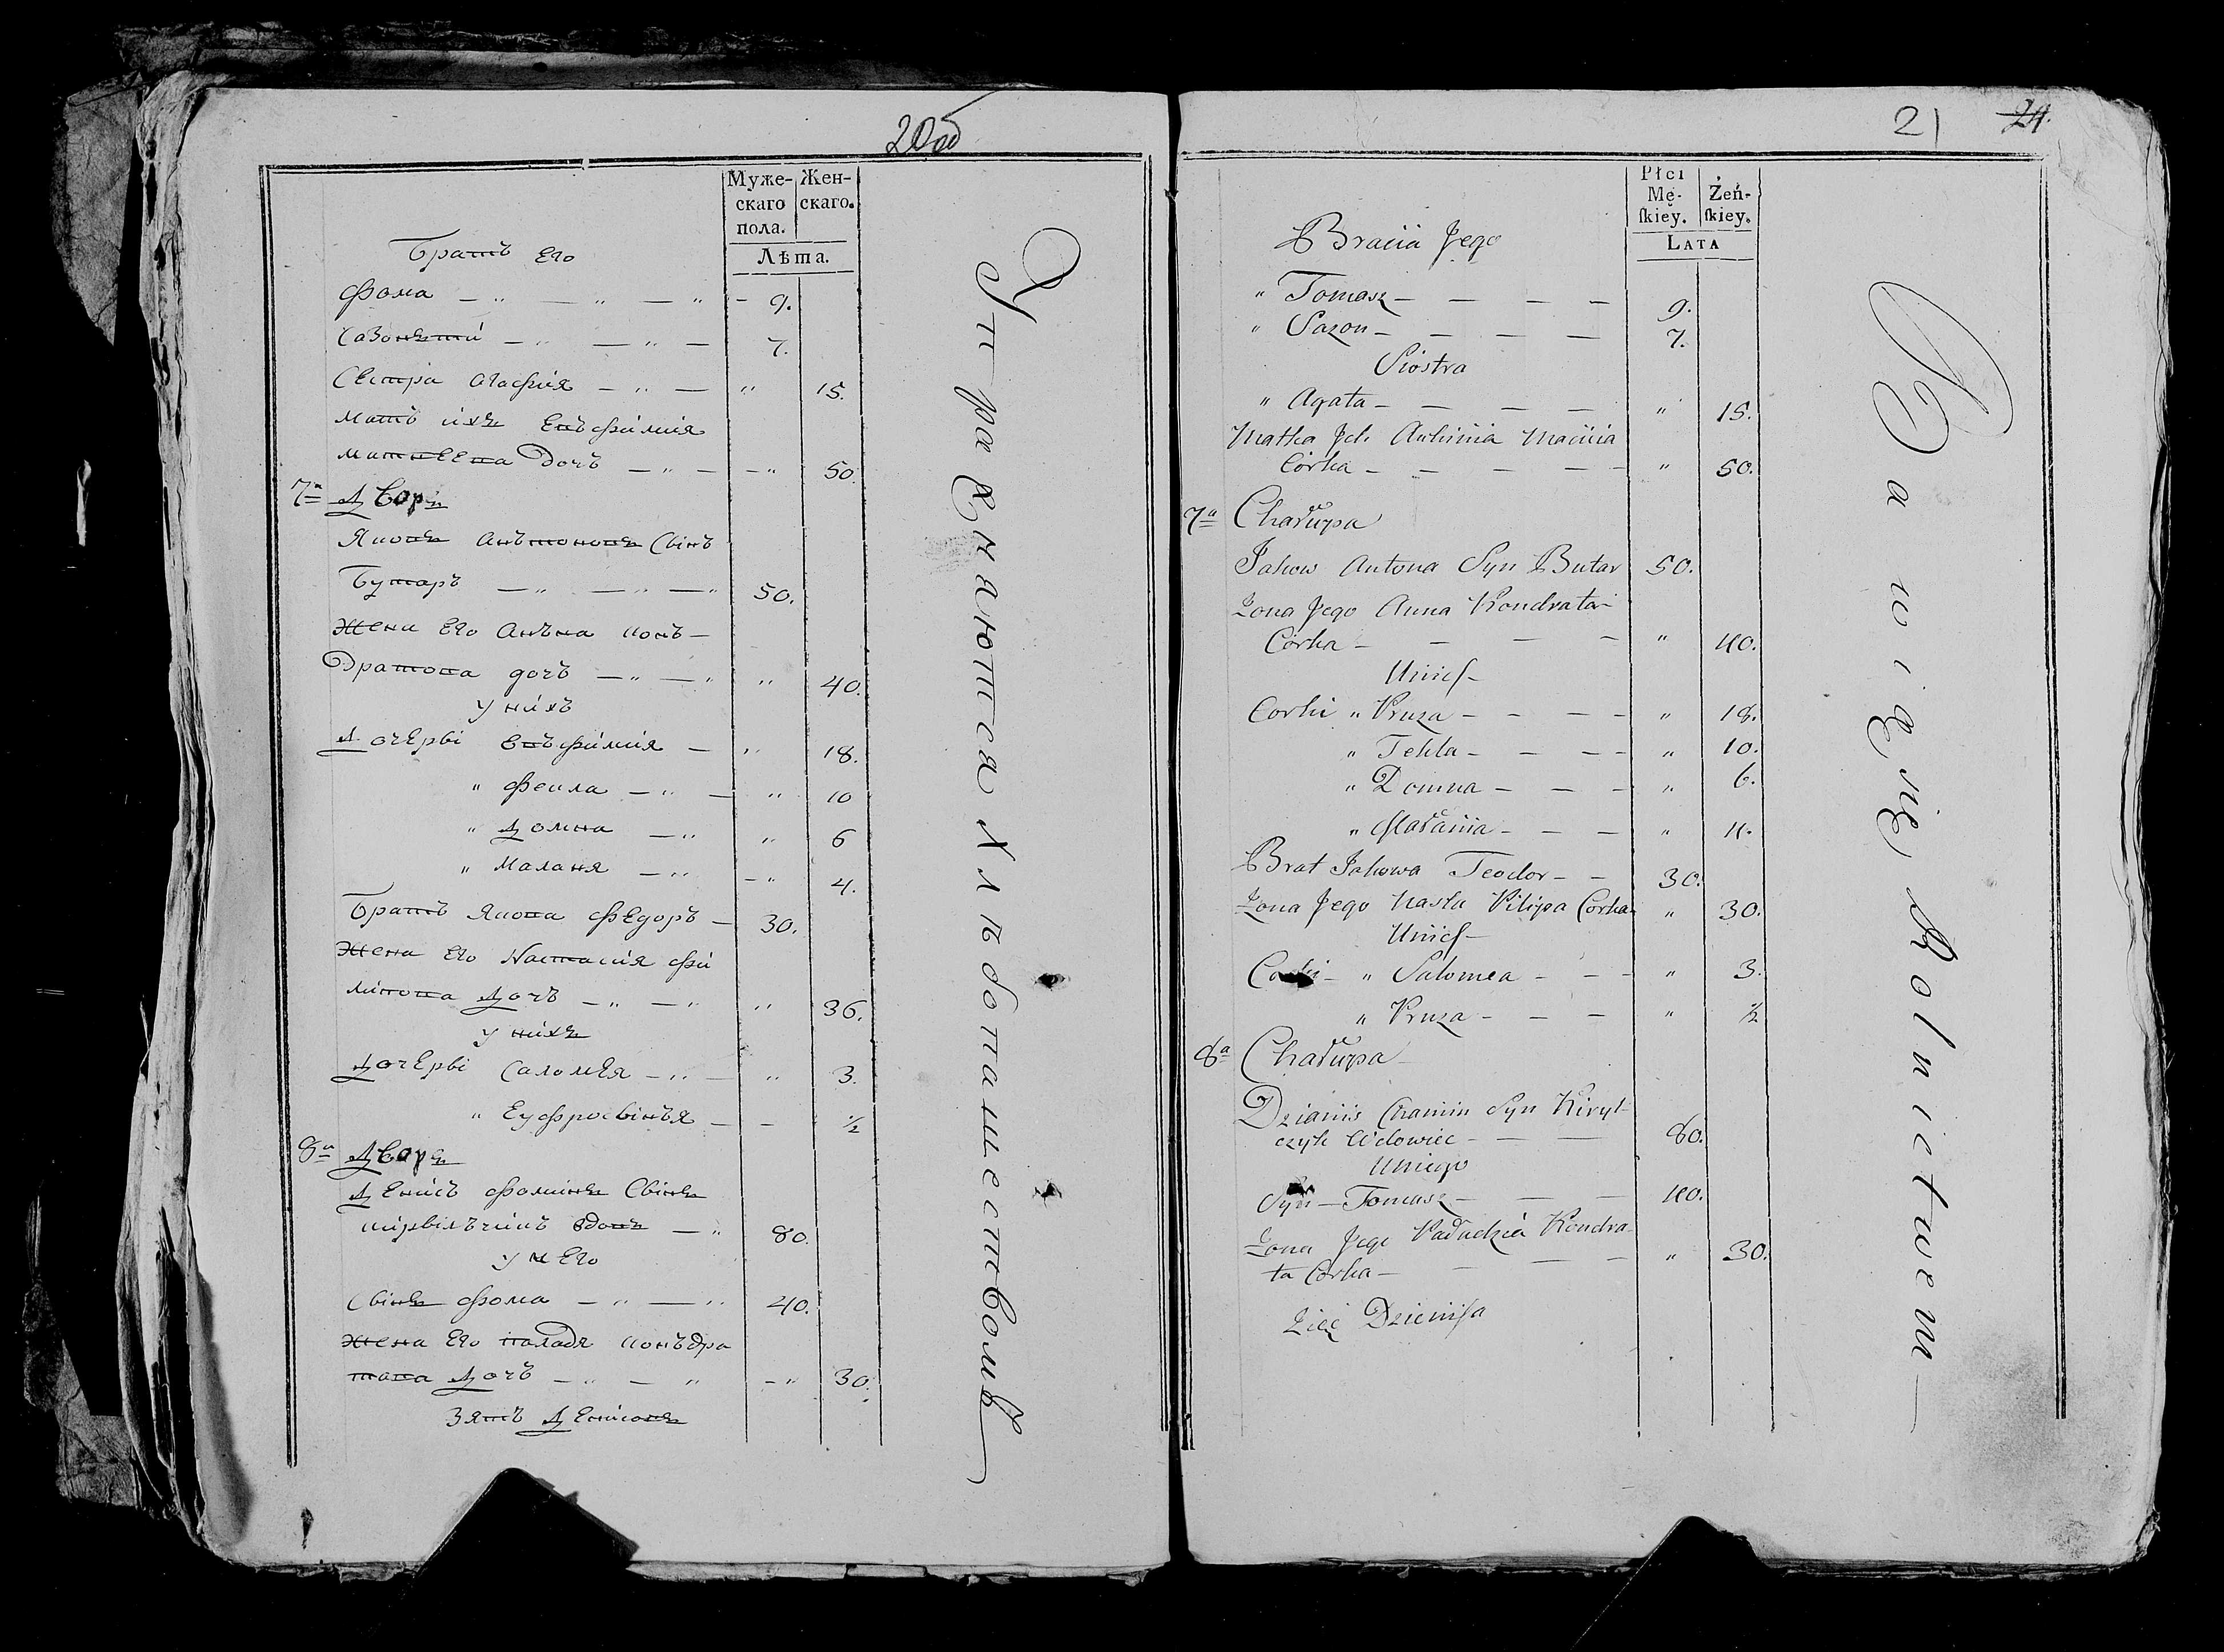 20об
Муже- Жен-
скаго скаго.
пола.
Лѣта.
Братъ Его
Фома — " — " — " - 9.
Сазонътий — " — " — 7.
Сестра Агафия — " — " 15.
Мать ихъ Евъфимия
Матвеева Дочъ — " — - " 50.
7ª Дворъ
Яковъ Анътоновъ Свінъ
Бутаръ — " — " — " 50.
Жена Его Анъна Конъ-
Дратова дочъ — " — " " 40.
У нихъ
Дочерві Евъфимия — " 18.
" Фекла — " — " 10
" Домна — " " 6
" Маланя — " - " 4.
Братъ Якова Федоръ — 30.
Жена Его Настасия Фи
липова Дочъ — " — " " 36.
У нихъ
Дочерві Саломея — " — " 3.
" Еуфросвінъя — - ½
8ª Дворъ
Денисъ Фоминъ Свінъ
кирвілъчикъ вдовъ — " 80.
У нЕго
Свінъ Фома — " — " 40.
Жена Его паладя Конъдра
това Дочъ — " — " - " 30.
Зять Денисовъ
Упражняются Хлѣбопашествомъ
21 24.
Płci
Mę- Żeń-
skiey. skiey.
Lata
Braciia Jego
" Tomasz — — — — 9.
" Sazon — — — — 7.
Siostra
" Agata — — — — " 15.
Matka Ich Auhimia Maciiia
Córka — — — — — " 50.
7ª Chałupa
Jakow Antona Syn Butar 50.
Żona Jego Anna Kondrata-
Córka — — — — " 40.
Unich
Corki " Pruza — — — — " 18.
" Tekla — — — — " 10.
" Domna — — — " 6.
" Małania — — — " 4.
Brat Jakowa Teodor — — 30.
Żona Jego Nasta Pilipa Córka " 30.
Unich
Corki — " Salomea — — — " 3.
" Pruza — — — " ½
8ª Chałupa
Dzianis Chamin Syn Kiryl-
czyk Wdowiec — — — 80.
Uniego
Syn — Tomasz — — — 40.
Żona Jego Paładzia Kondra-
ta Córka — — — — " 30.
Zięć Dzienisa
Bawią się Rolnictwem —